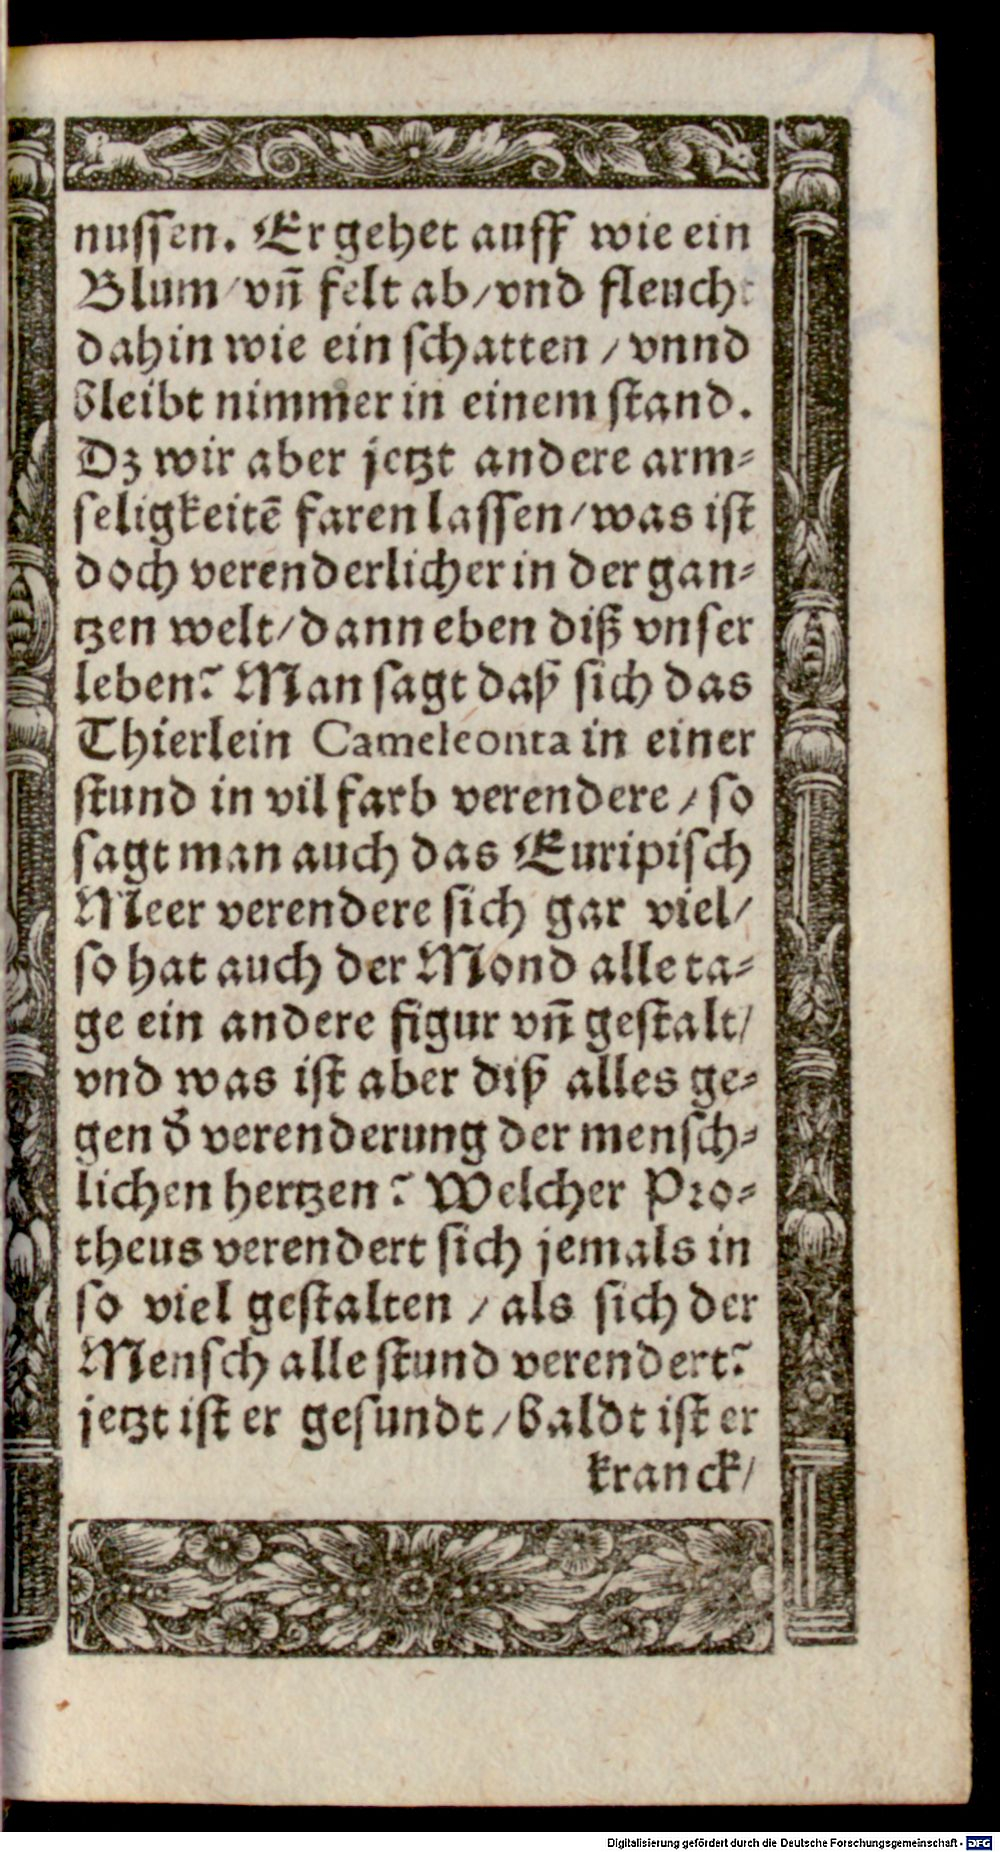 nussen. Er gehet auff wie ein
Blum/vñ felt ab/vnd fleucht
dahin wie ein schatten / vnnd
bleibt nimmer in einem stand.
Dz wir aber jetzt andere arm⸗
seligkeitē faren lassen/was ist
doch verenderlicher in der gan⸗
tzen welt/dann eben diß vnser
leben? Man sagt daß sich das
Thierlein Cameleonta in einer
stund in vil farb verendere / so
sagt man auch das Euripisch
Meer verendere sich gar viel/
so hat auch der Mond alle ta⸗
ge ein andere figur vñ gestalt/
vnd was ist aber diß alles ge⸗
gen d̓ verenderung der mensch⸗
lichen hertzen? Welcher Pro⸗
theus verendert sich jemals in
so viel gestalten / als sich der
Mensch alle stund verendert?
jetzt ist er gesundt/baldt ist er
kranck/
Digitalisierung gefördert durch die Deutsche Forschungsgemeinschaft - DFG